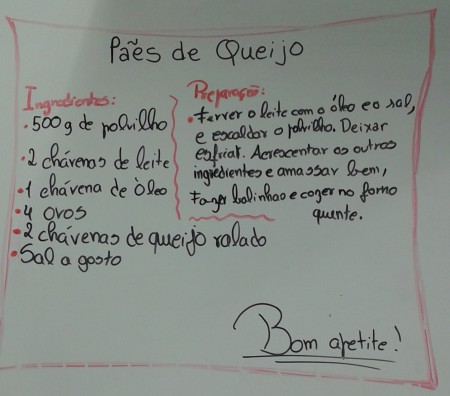 Pães de Queijo
Ingredientes:
• 500g de polvilho
• 2 chávenas de leite
• 1 chávena de óleo
• 4 ovos
• 2 chávenas de queijo ralado
• Sal a gosto
Preparação:
• Ferver o leite com o óleo e o sal,
e escaldar o polvilho. Deixar
esfriar. Acrescentar os outros
ingredientes e amassar bem,
Fazer bolinhas e cozer no forno
quente.
Bom apetite!